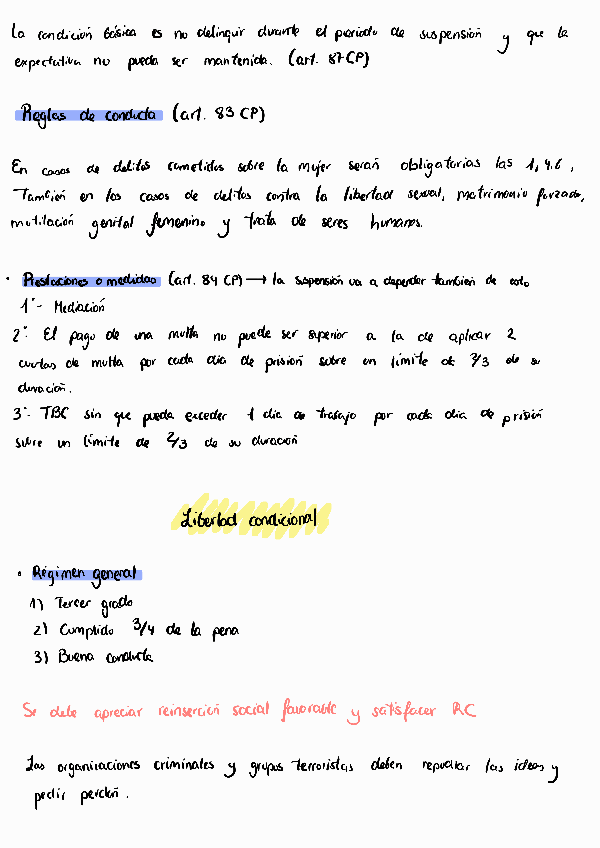 La condición básica es no delinquir durante el periodo de suspensión y que la
expectativa no pueda ser mantenida. (art. 87 CP)
Reglas de conducta (art. 83 CP)
En casos de delitos cometidos sobre la mujer serán obligatorias las 1, 4.6,
También en los casos de delitos contra la libertad sexual, matrimonio forzado,
mutilación genital femenino y trata de seres humanos.
· Prestaciones o medidas (art. 84 CP) → la suspensión va a depender también de esto
1°- Mediación
2°- El pago de una multa no puede ser superior a la de aplicar 2
cuotas de multa por cada día de prisión sobre un límite de 2/3 de su
duración.
3°- TBC sin que pueda exceder 1 día de trabajo por cada día de prisión
sobre un límite de 2/3 de su duración
Libertad condicional
• Régimen general
1) Tercer grado
2) Cumplido 3/4 de la pena
3) Buena conducta
Se debe apreciar reinserción social favorable y satisfacer RC
Las organizaciones criminales y grupos terroristas deben repudiar las ideas y
pedir perdón.